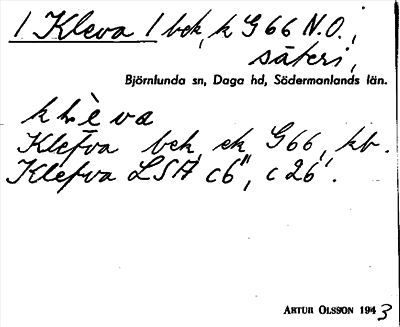 1 Kleva 1 bek, k G 66 N.O.,
säteri,
Björnlunda sn, Daga hd, Södermanlands län.
klèva
Klefva bek, ek G 66, kb.
Klefva LSA c6", c26".
ARTUR OLSSON 1943